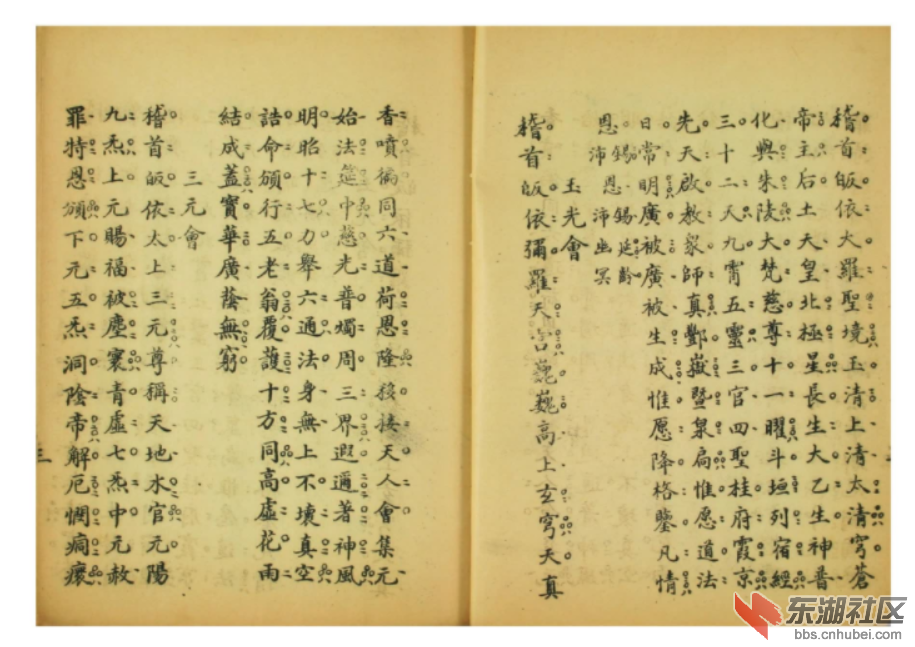 稽首皈依大羅聖境玉清上清太清穹蒼
帝主后土天皇北極星長生大乙生神普
化興朱陵大梵慈尊十一曜斗垣列宿經
三十二天九霄五靈三官四聖桂府霞京
先天啟教眾師真酆嶽暨泉扃惟愿道法
日常明廣被廣被生成惟愿降格鑒凡情
恩錫沛恩錫延齡沛幽冥
玉光會
稽首皈依彌羅天宮巍巍高上玄穹天真
香噴徧同六道荷恩隆接天人會集元
始法筵中慈光普燭周三界遐邇著神風
明昭十七力舉六通法身無上不壞真空
誥命頒行五老翁覆護十方同高虛花雨
結成蓋寶華廣蔭無窮
三元會
稽首皈依太上三元尊稱天地水官元陽
九炁上元賜福被塵寰青虛七炁中元赦
罪特恩頒下元五炁洞陰帝解厄憫痌瘝
三
东湖社区
bbs.cnhubei.com